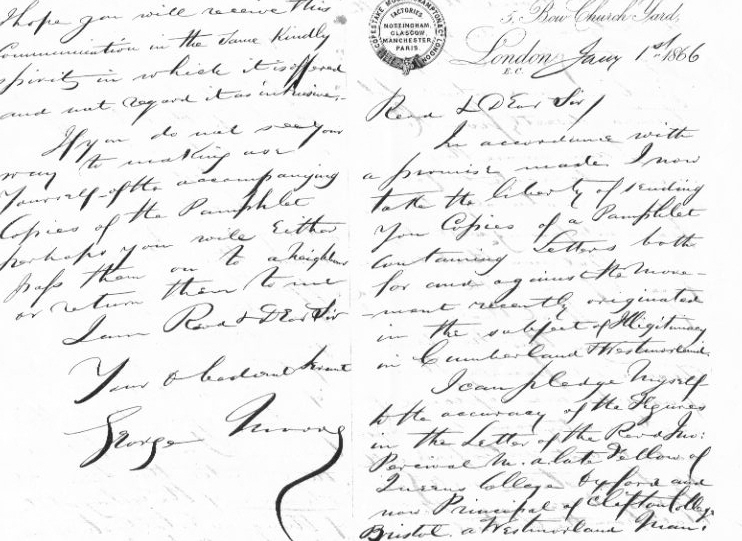 COPESTAKE MOORE CRAMPTON & CO
LONDON
FACTORIES
NOTTINGHAM,
GLASGOW,
MANCHESTER,
PARIS.
5, Bow Church Yard,
London Jany 1st 1866
E.C.
Revd & Dear Sir/
In accordance with
a promise made I now
take the liberty of sending
you Copies of a Pamphlet
containing Letters both
for and against the move-
ment recently originated
in the subject of Illigitimacy
in Cumberland & Westmorland.
I can pledge myself
to the accuracy of the Figures
in the Letter of the Revd Jno:
Percival M. a. late Fellow of
Queens College Oxford and
now Principal of Clifton College
Bristol. a Westmorland Man.
I hope you will receive this
Communication in the same Kindly
spirit in which it is offered
and not regard it as intrusive.
If you do not see your
way to making use
yourself of the accompanying
Copies of the Pamphlet
perhaps you will Either
pass them on to a Neighbour
or return them to me
I am Revd & Dear Sir
Your Obedient Servant
George Moore